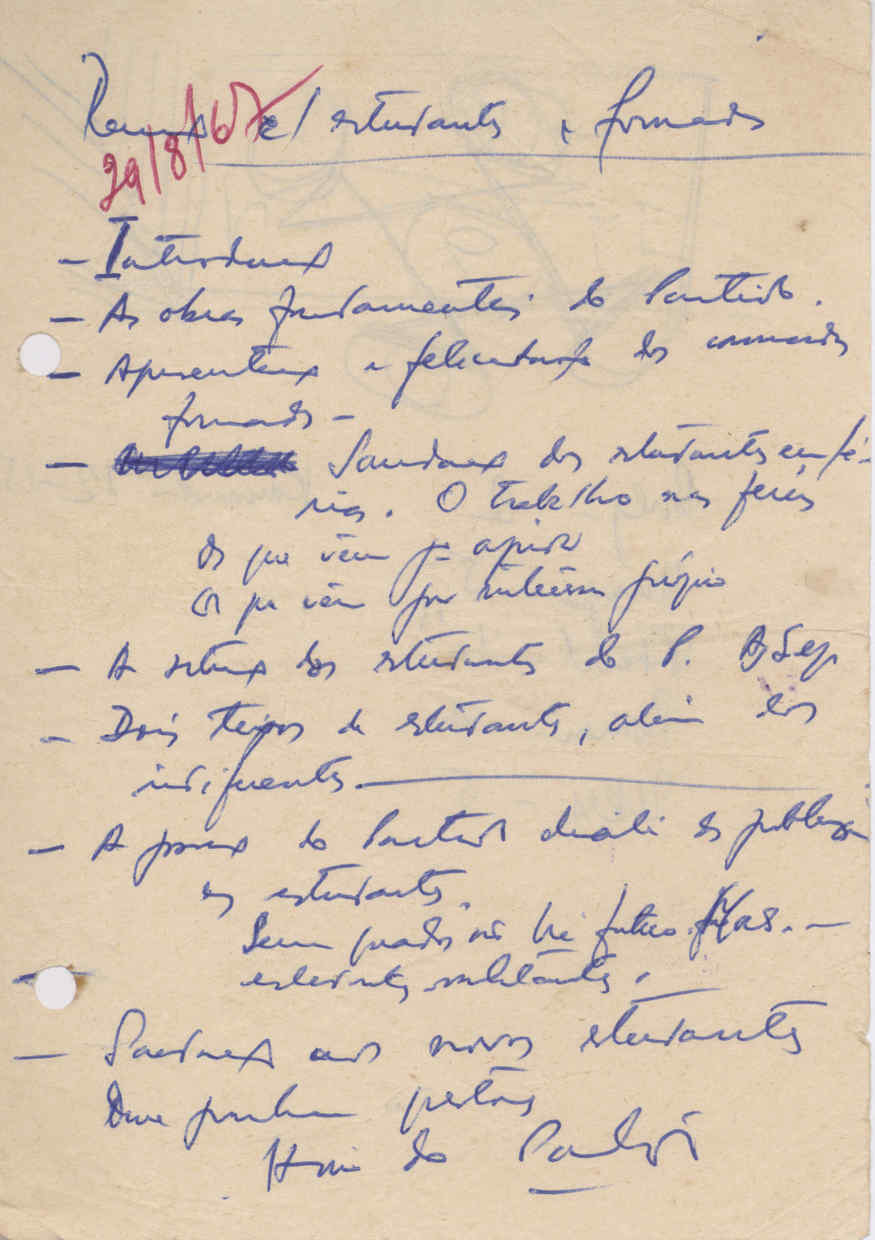 Reunião c/ estudantes e formados
29/8/67
- Introdução
- As obras fundamentais do Partido.
- Apresentação e felicitação dos camaradas
formados -
- Saudação dos estudantes em fé-
rias. O trabalho nas férias
Os que vêm p^a apoio
Os que vêm por interesse próprio
- A setução dos estudantes do P.
- Dois tipos de estudantes, além dos
indiferentes
- A posição do Partido diante
os estudantes.
Sem quadros não há futuro. Mas. -
estudantes militantes.
- Saudação aos novos estudantes
Hino do Partido